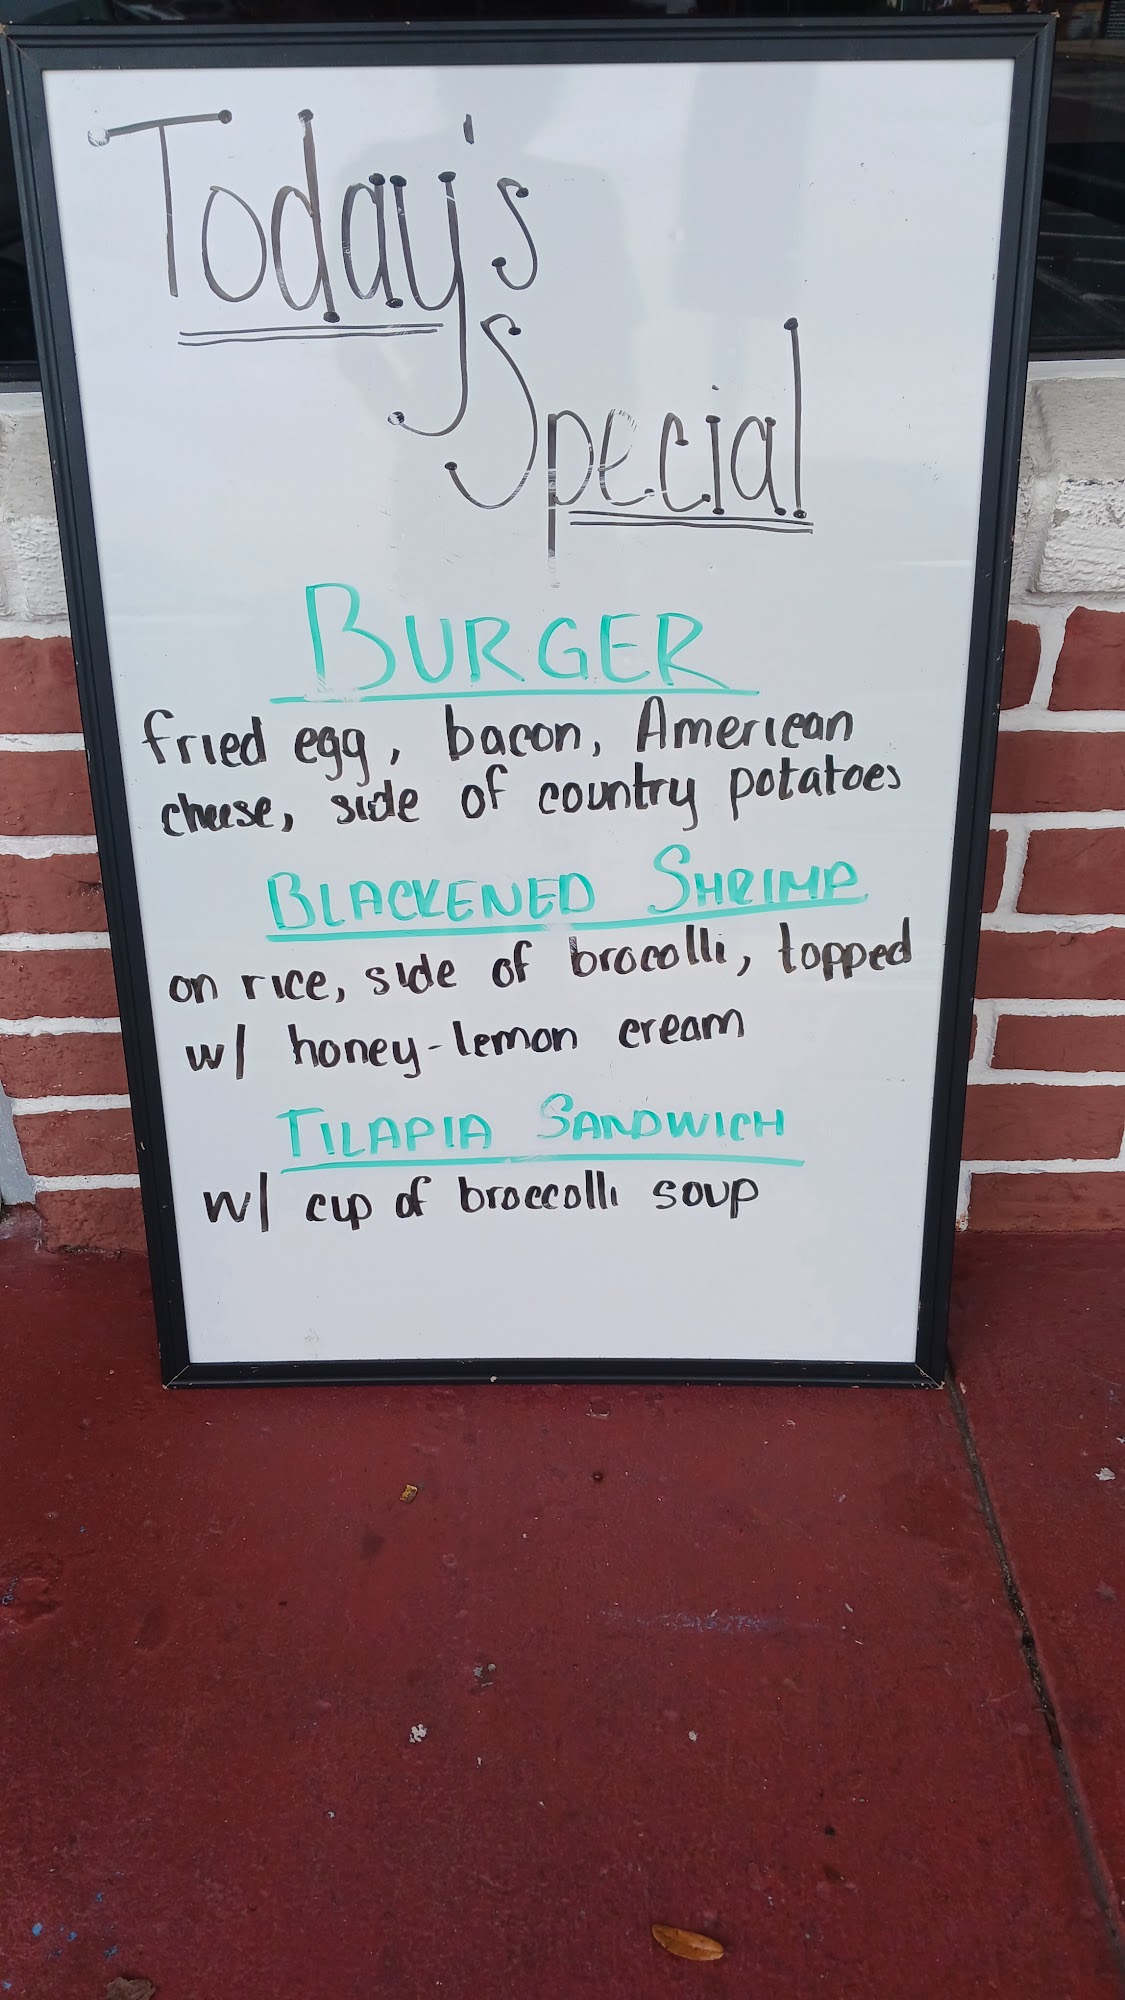 Today's
Special
BURGER
fried egg, bacon, American
cheese, side of country potatoes
BLACKENED SHRIMP
on rice, side of brocolli, topped
w/ honey-lemon cream
TILAPIA SANDWICH
w/ cup of broccolli soup